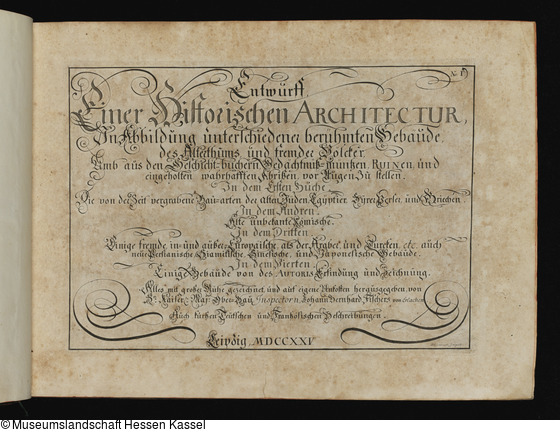 Entwurff
Einer Historischen ARCHITECTUR,
In Abbildung unterschiedener berühmten Gebäude,
des Alterthums und fremder Völcker,
Umb aus den Geschicht-büchern, Gedächtnüß-müntzen, RUINEN, und
eingeholten wahrhafften Abrißen, vor Augen zu stellen.
In dem Ersten Buche.
Die von der Zeit vergrabene Bau-arten der Alten Juden, Egyptier, Syrer, Perser, und Griechen.
In dem Andren.
Alte unbekante Römische.
In dem Dritten.
Einige fremde in- und außer-Europäische, als der Araber, und Türcken, etc. auch
neue Persianische, Siamitische, Sinesische, und Japonesische Gebäude.
In dem Vierten.
Einige Gebäude von des AUTORIS Erfindung und Zeichnung.
Alles mit großer Mühe gezeichnet, und auf eigene Unkosten herausgegeben, von
Kaÿserl. Maj. Ober-Bau-Inspectorn, Johann Bernhard, Fischers, von Erlachen.
Auch kurtzen Teutschen und Frantzösischen Beschreibungen.
Leipzig, MDCCXXV
©Museumslandschaft Hessen Kassel